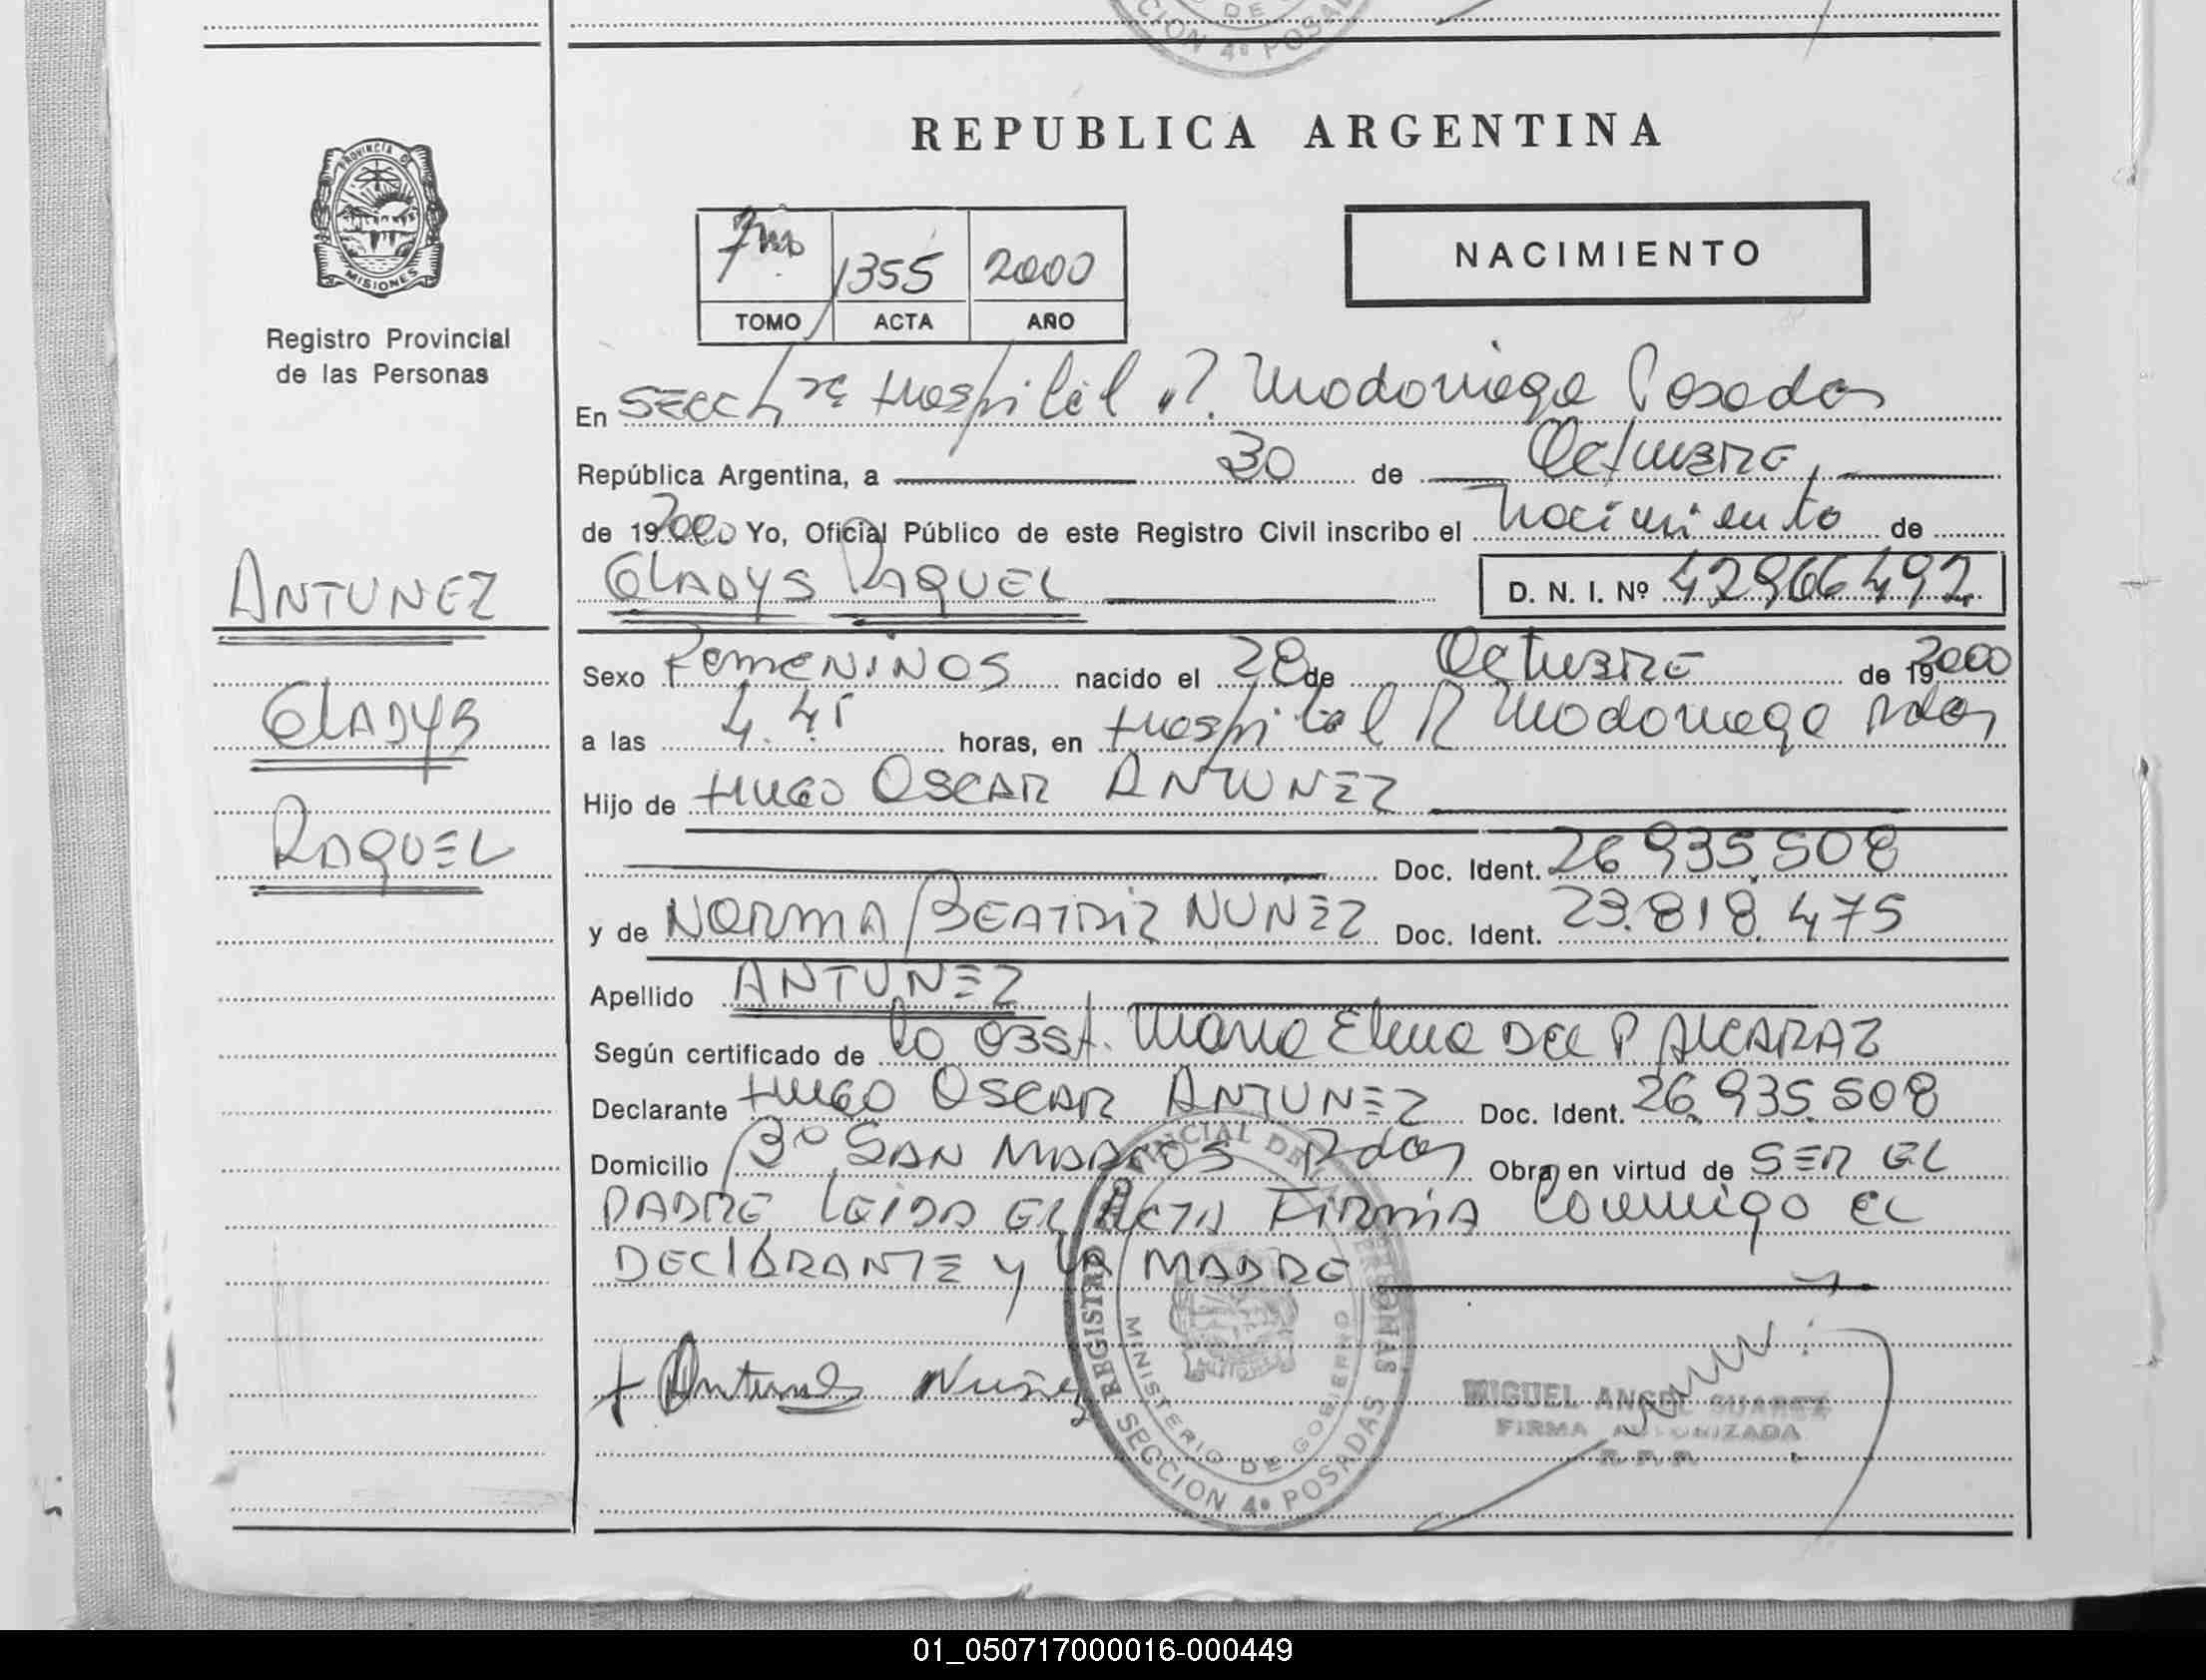 CION 4º POSADAS
DE
REPUBLICA ARGENTINA
PROVINCIA DE
MISIONES
Registro Provincial
de las Personas
7mo 1355 2000
TOMO ACTA AÑO
NACIMIENTO
En SECC 4ta Hospital R. Madariaga Posadas
República Argentina, a 30 de Octubre
de 19 2000 Yo, Oficial Público de este Registro Civil inscribo el Nacimiento de
GLADYS RAQUEL D. N. I. Nº 42966492
ANTUNEZ
GLADYS
RAQUEL
Sexo FEMENINOS nacido el 28 de Octubre de 19 2000
a las 4.45 horas, en Hospital R Madariaga Pdas
Hijo de HUGO OSCAR ANTUNEZ
Doc. Ident. 26 935.508
y de NORMA BEATRIZ NUÑEZ Doc. Ident. 23.818.475
Apellido ANTUNEZ
Según certificado de la OBST. Maria Elena DEL P ALCARAZ
Declarante HUGO OSCAR ANTUNEZ Doc. Ident. 26.935.508
Domicilio Bº SAN MARCOS Pdas Obra en virtud de SER EL
PADRE LEIDA EL ACTA FIRMA Conmigo EL
DECLARANTE y LA MADRE
Antunez Nuñez
REGISTRO PROVINCIAL DE LAS PERSONAS
MINISTERIO DE GOBIERNO
SECCION 4º POSADAS
MIGUEL ANGEL SUAREZ
FIRMA AUTORIZADA
R. P. P.
01_050717000016-000449